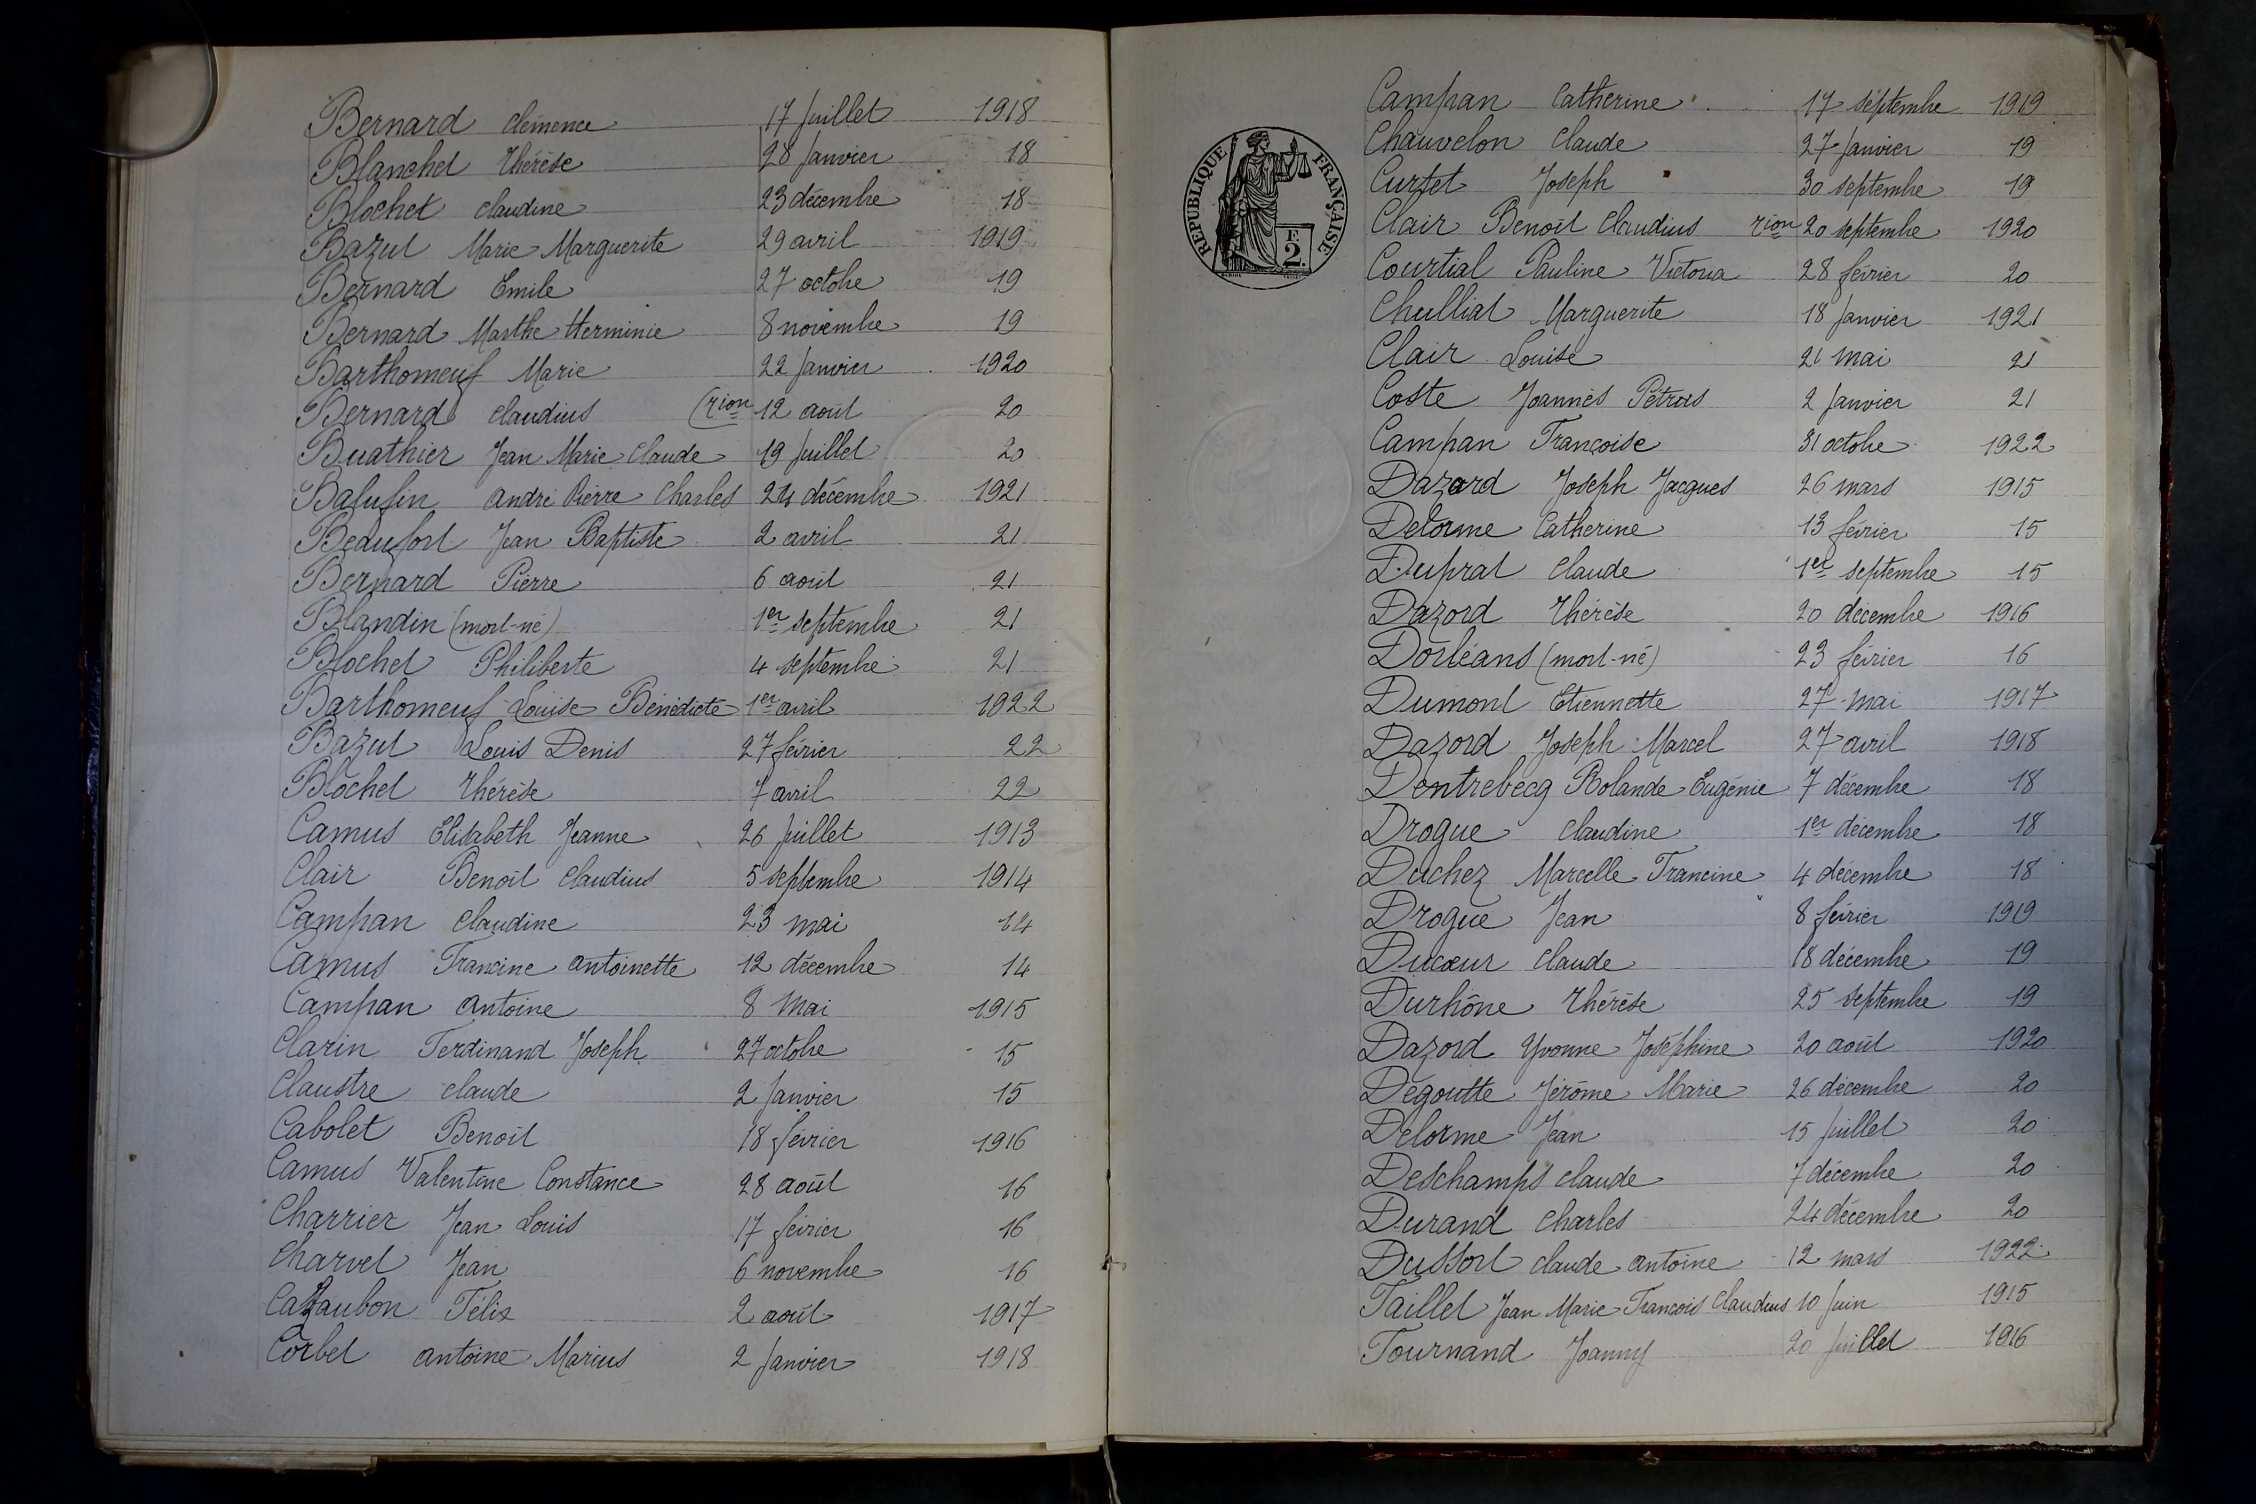 Bernard Clémence 17 Juillet 1918
Blanchet Thérèse 28 Janvier 18
Blochet Claudine 23 décembre 18
Bazut Marie Marguerite 29 avril 1919
Bernard Emile 27 octobre 19
Bernard Marthe Herminie 8 novembre 19
Barthomeuf Marie 22 Janvier 1920
Bernard Claudius (rion 12 août 20
Buathier Jean Marie Claude 19 Juillet 20
Balufin André Pierre Charles 24 décembre 1921
Beaufort Jean Baptiste 2 avril 21
Bernard Pierre 6 août 21
Blandin (mort-né) 1er septembre 21
Blochet Philiberte 4 septembre 21
Barthomeuf Louise Bénédicte 1er avril 1922
Bazut Louis Denis 27 février 22
Blochet Thérèse 7 avril 22
Camus Elisabeth Jeanne 26 Juillet 1913
Clair Benoît Claudius 5 septembre 1914
Campan Claudine 23 mai 14
Camus Francine Antoinette 12 décembre 14
Campan Antoine 8 Mai 1915
Clarin Ferdinand Joseph 27 octobre 15
Claustre Claude 2 Janvier 15
Cabolet Benoît 18 février 1916
Camus Valentine Constance 28 août 16
Charrier Jean Louis 17 février 16
Charvet Jean 6 novembre 16
Cazaubon Félix 2 août 1917
Corbet Antoine Marius 2 Janvier 1918
RÉPUBLIQUE FRANÇAISE
F.
2.
Campan Catherine 17 septembre 1919
Chauvelon Claude 27 Janvier 19
Curtet Joseph 30 septembre 19
Clair Benoît Claudius rion 20 septembre 1920
Courtial Pauline Victoria 28 février 20
Chulliat Marguerite 18 Janvier 1921
Clair Louise 21 mai 21
Coste Joannès Pétrus 2 Janvier 21
Campan Françoise 31 octobre 1922
Dazord Joseph Jacques 26 mars 1915
Delorme Catherine 13 février 15
Duprat Claude 1er septembre 15
Dazord Thérèse 20 décembre 1916
Dorléans (mort-né) 23 février 16
Dumont Etiennette 27 mai 1917
Dazord Joseph Marcel 27 avril 1918
Dentrebecq Rolande Eugénie 7 décembre 18
Drogue Claudine 1er décembre 18
Duchez Marcelle Francine 4 décembre 18
Drogue Jean 8 février 1919
Ducœur Claude 18 décembre 19
Durhône Thérèse 25 septembre 19
Dazord Yvonne Joséphine 20 août 1920
Dégoutte Jérôme Marie 26 décembre 20
Delorme Jean 15 Juillet 20
Deschamps Claude 7 décembre 20
Durand Charles 24 décembre 20
Dussort Claude Antoine 12 mars 1922
Faillet Jean Marie François Claudius 10 Juin 1915
Fournand Joanny 20 Juillet 1916